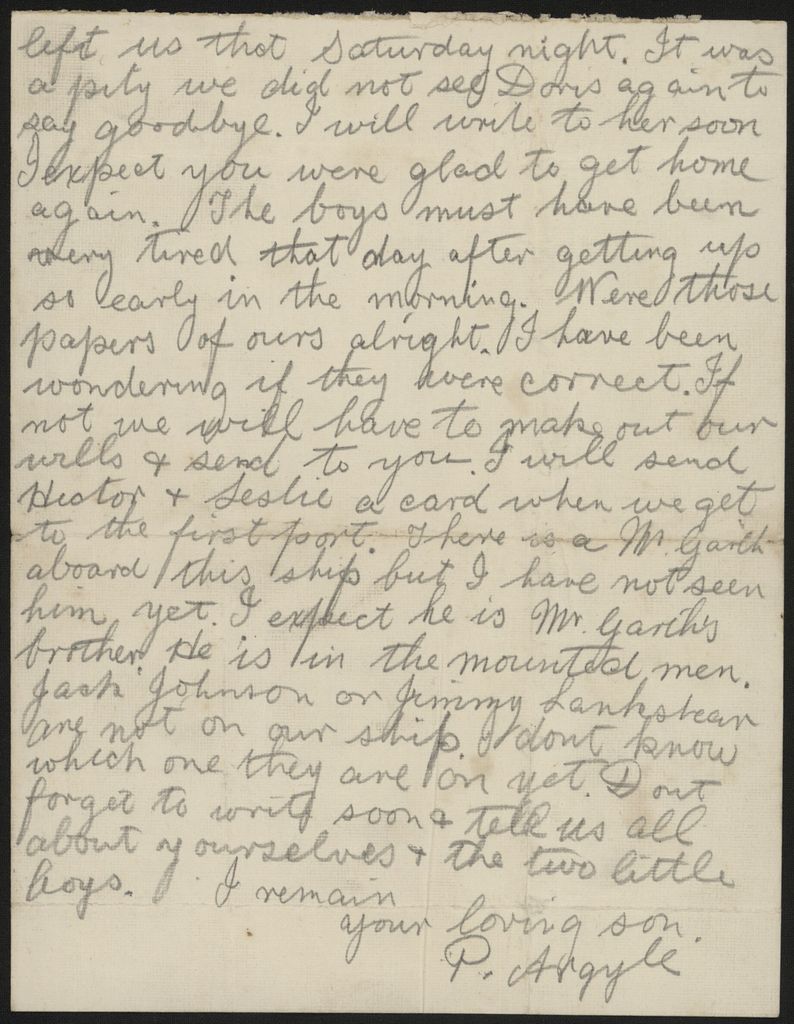 left us that Saturday night. It was
a pity we did not see Doris again to
say goodbye. I will write to her soon
I expect you were glad to get home
again. The boys must have been
very tired that day after getting up
so early in the morning. Were those
papers of ours alright. I have been
wondering if they were correct. If
not we will have to make out our
wills & send to you. I will send
Hector & Leslie a card when we get
to the first port. There is a Mr. Garth
aboard this ship but I have not seen
him yet. I expect he is Mr. Garth's
brother. He is in the mounted men.
Jack Johnson or Jimmy Lankstear
are not on our ship. I dont know
which one they are on yet. Dont
forget to write soon & tell us all
about yourselves & the two little
boys. I remain
your loving son.
P. Argyle